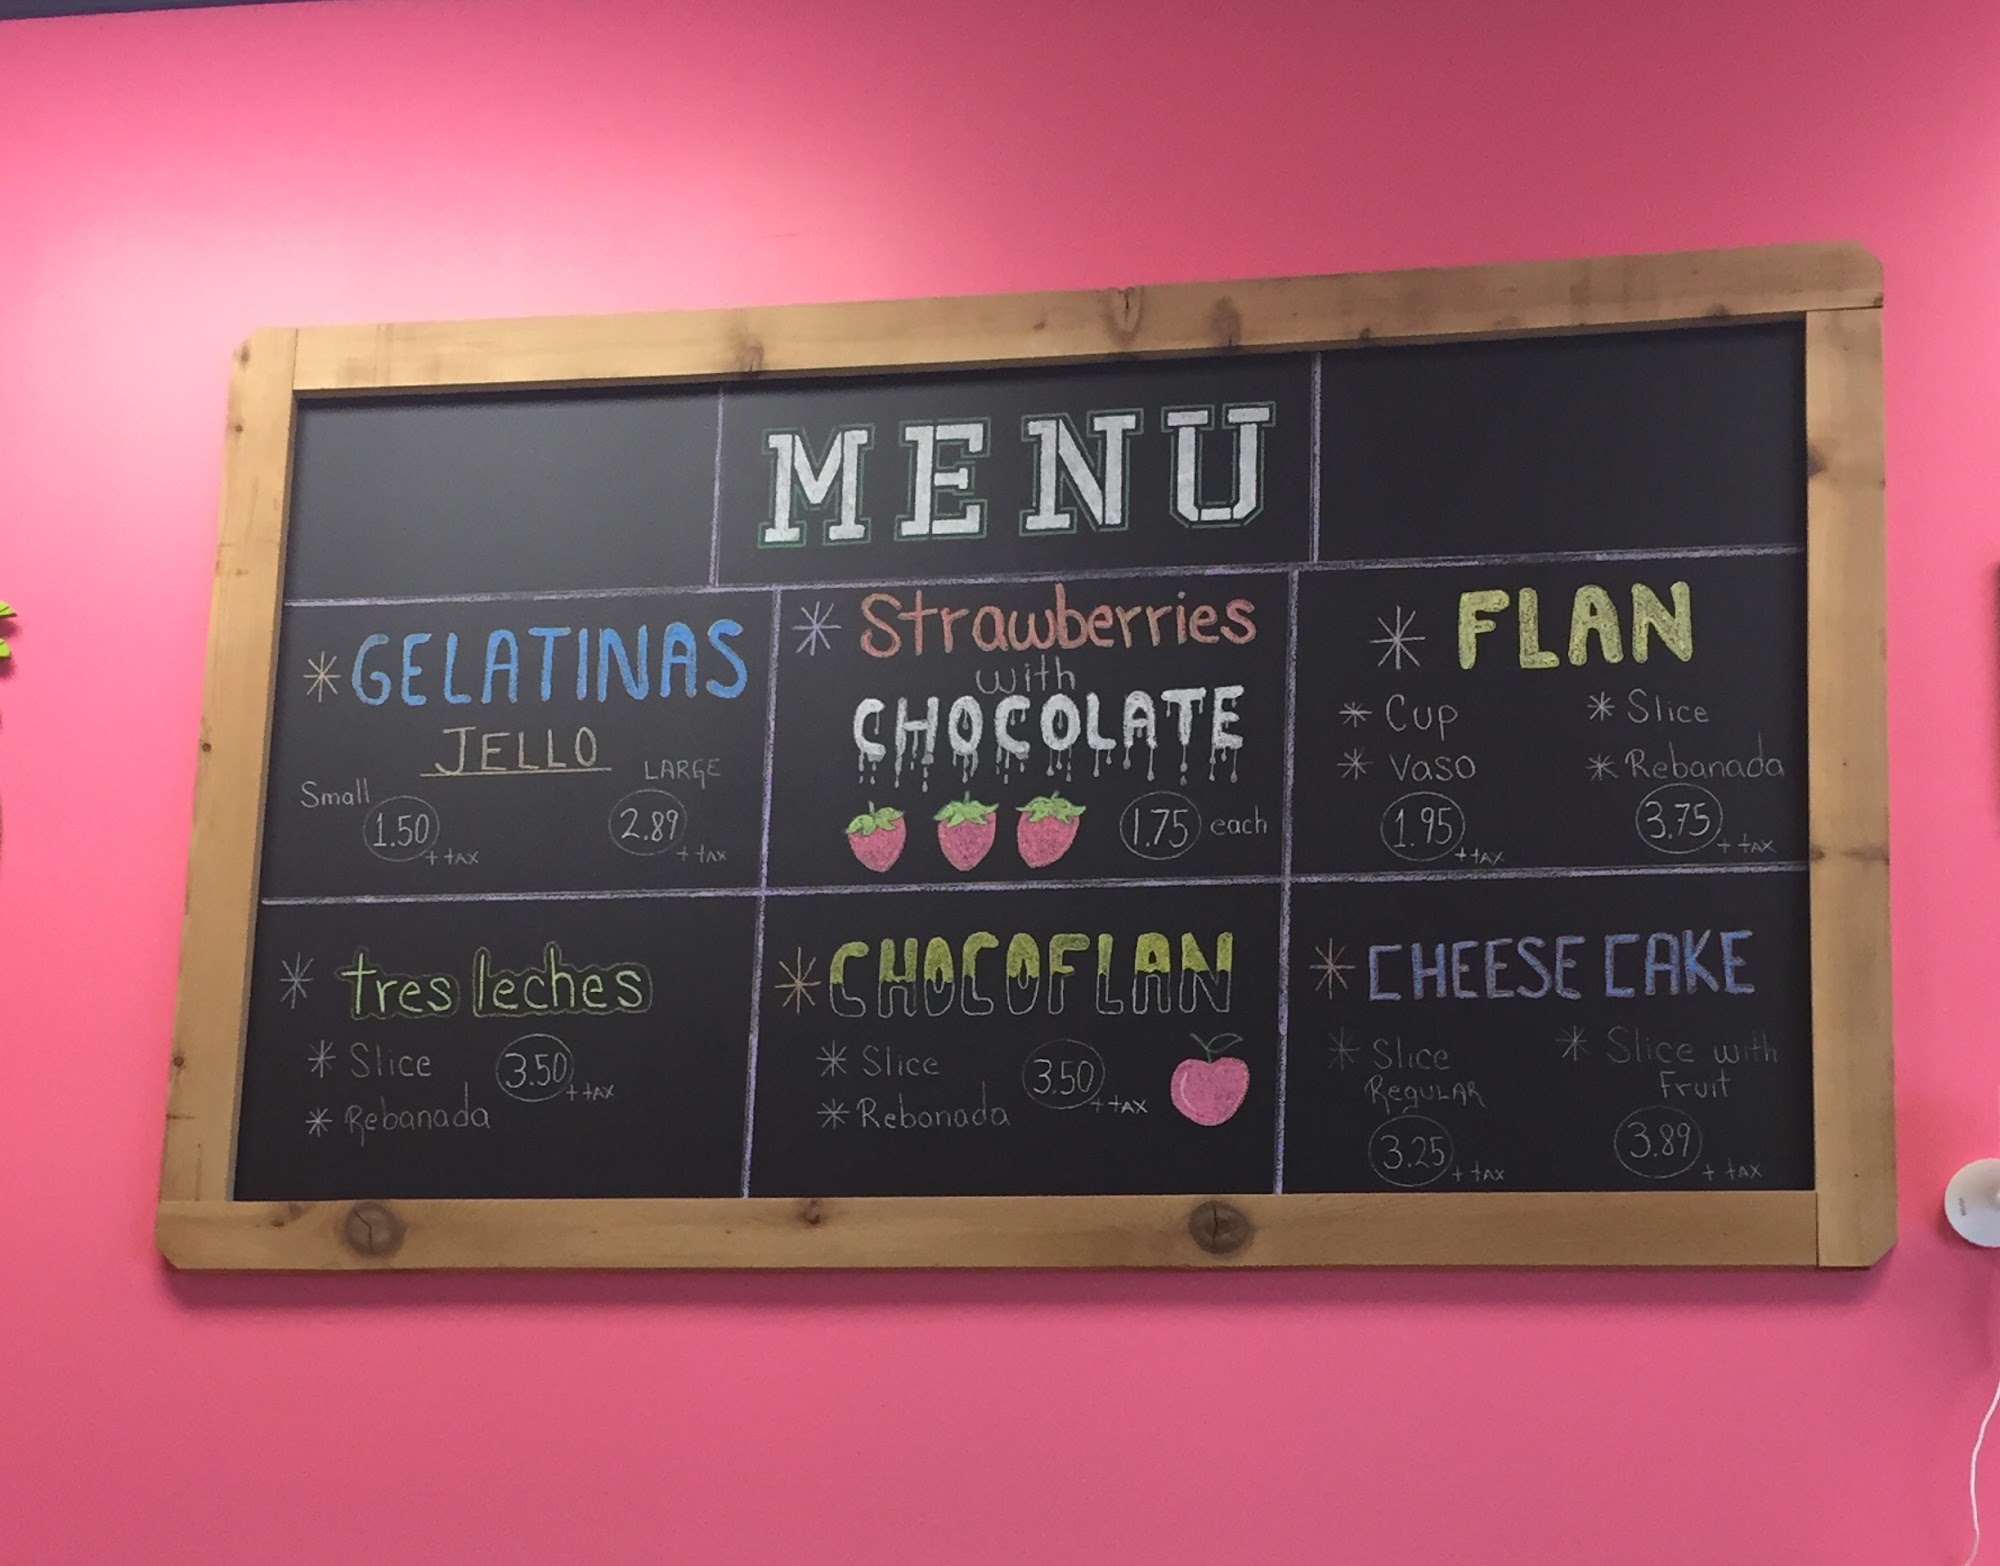 MENU
* GELATINAS
JELLO
Small 1.50 + tax
LARGE 2.89 + tax
* Strawberries
with
CHOCOLATE
1.75 each
* FLAN
* Cup
* Vaso
1.95 + tax
* Slice
* Rebanada
3.75 + tax
* tres leches
* Slice
* Rebanada
3.50 + tax
* CHOCOFLAN
* Slice
* Rebanada
3.50 + tax
* CHEESE CAKE
* Slice
REGULAR
3.25 + tax
* Slice with
Fruit
3.89 + tax